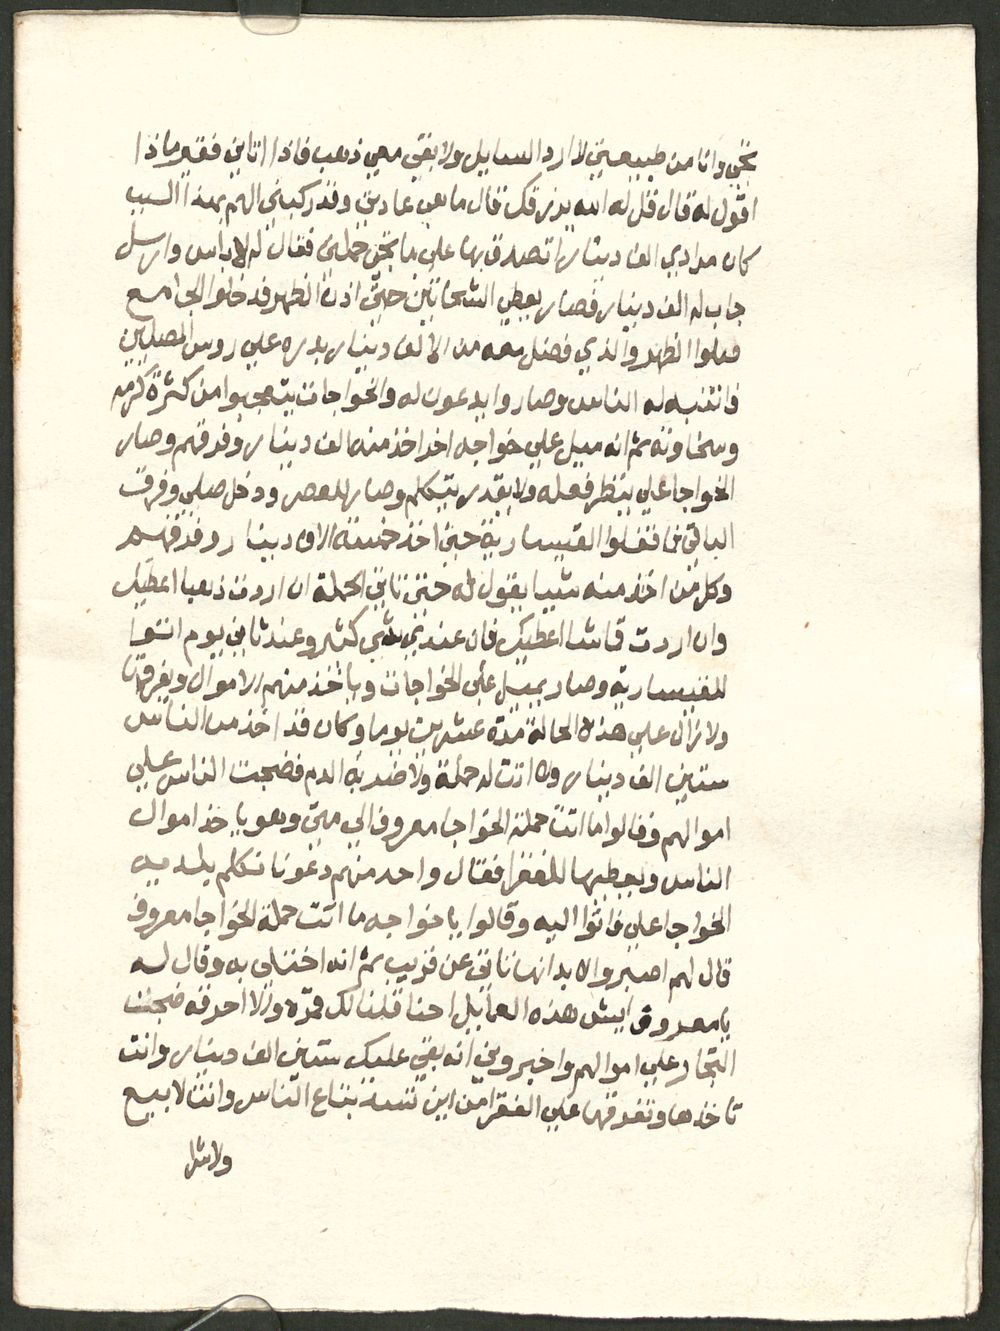 تجي وانا من طبيعتي لا ارد السايل ولا بقي معي ذهب فاذا اتاني فقير ماذا
اقول له قال قل له الله يرزقك قال ما هي عادتي وقد ركبني الهم بهذا السبب
كان مرادي الف دينار اتصدق بها علي ما تجي حملتي فقال له لا باس وارسل
جاب له الف دينار فصار يعطي الشحاتين حتي اذن الظهر فدخلوا الجامع
فصلوا الظهر والذي فضل معه من الالف دينار بدره علي روس المصليين
فانتبه له الناس وصاروا يدعون له والخواجات يتعجبوا من كثرة كرمه
وسخاوته ثم انه ميل علي خواجه اخر اخذ منه الف دينار وفرقهم وصار
الخواجا علي ينظر فعله ولا يقدر يتكلم وصار للعصر ودخل صلي وفرق
الباقي فما قفلوا القيسارية حتي اخذ خمسة الاف دينار وفرقهم
وكل من اخذ منه شيا يقول له حتي تاتي الحملة ان اردت ذهبا اعطيك
وان اردت قماشا اعطيك فان عندي شي كثير وعند ثاني يوم اتوا
للقيسارية وصار يميل علي الخواجات وياخذ منهم الاموال ويفرقها
ولا زال علي هذه الحالة مدة عشرين يوما وكان قد اخذ من الناس
ستين الف دينار ولا اتت له حملة ولا ضربة الدم فضجت الناس علي
اموالهم وقالوا ما اتت حملة الخواجا معروف الي متي وهو ياخذ اموال
الناس ويعطيها للفقرا فقال واحد منهم دعونا نتكلم يلديه
الخواجا علي فاتوا اليه وقالوا يا خواجه ما اتت حملة الخواجا معروف
قال لهم اصبروا لا بد انها تاتي عن قريب ثم انه اختلي به وقال له
يا معروف ايش هذه العمايل احنا قلنا لك قمره ولا احرقه ضجت
التجار علي اموالهم واخبروني انه بقي عليك ستين الف دينار وانت
تاخذها وتفرقها علي الفقرا من اين تسد بتاع الناس وانت لا بيع
ولا شرا